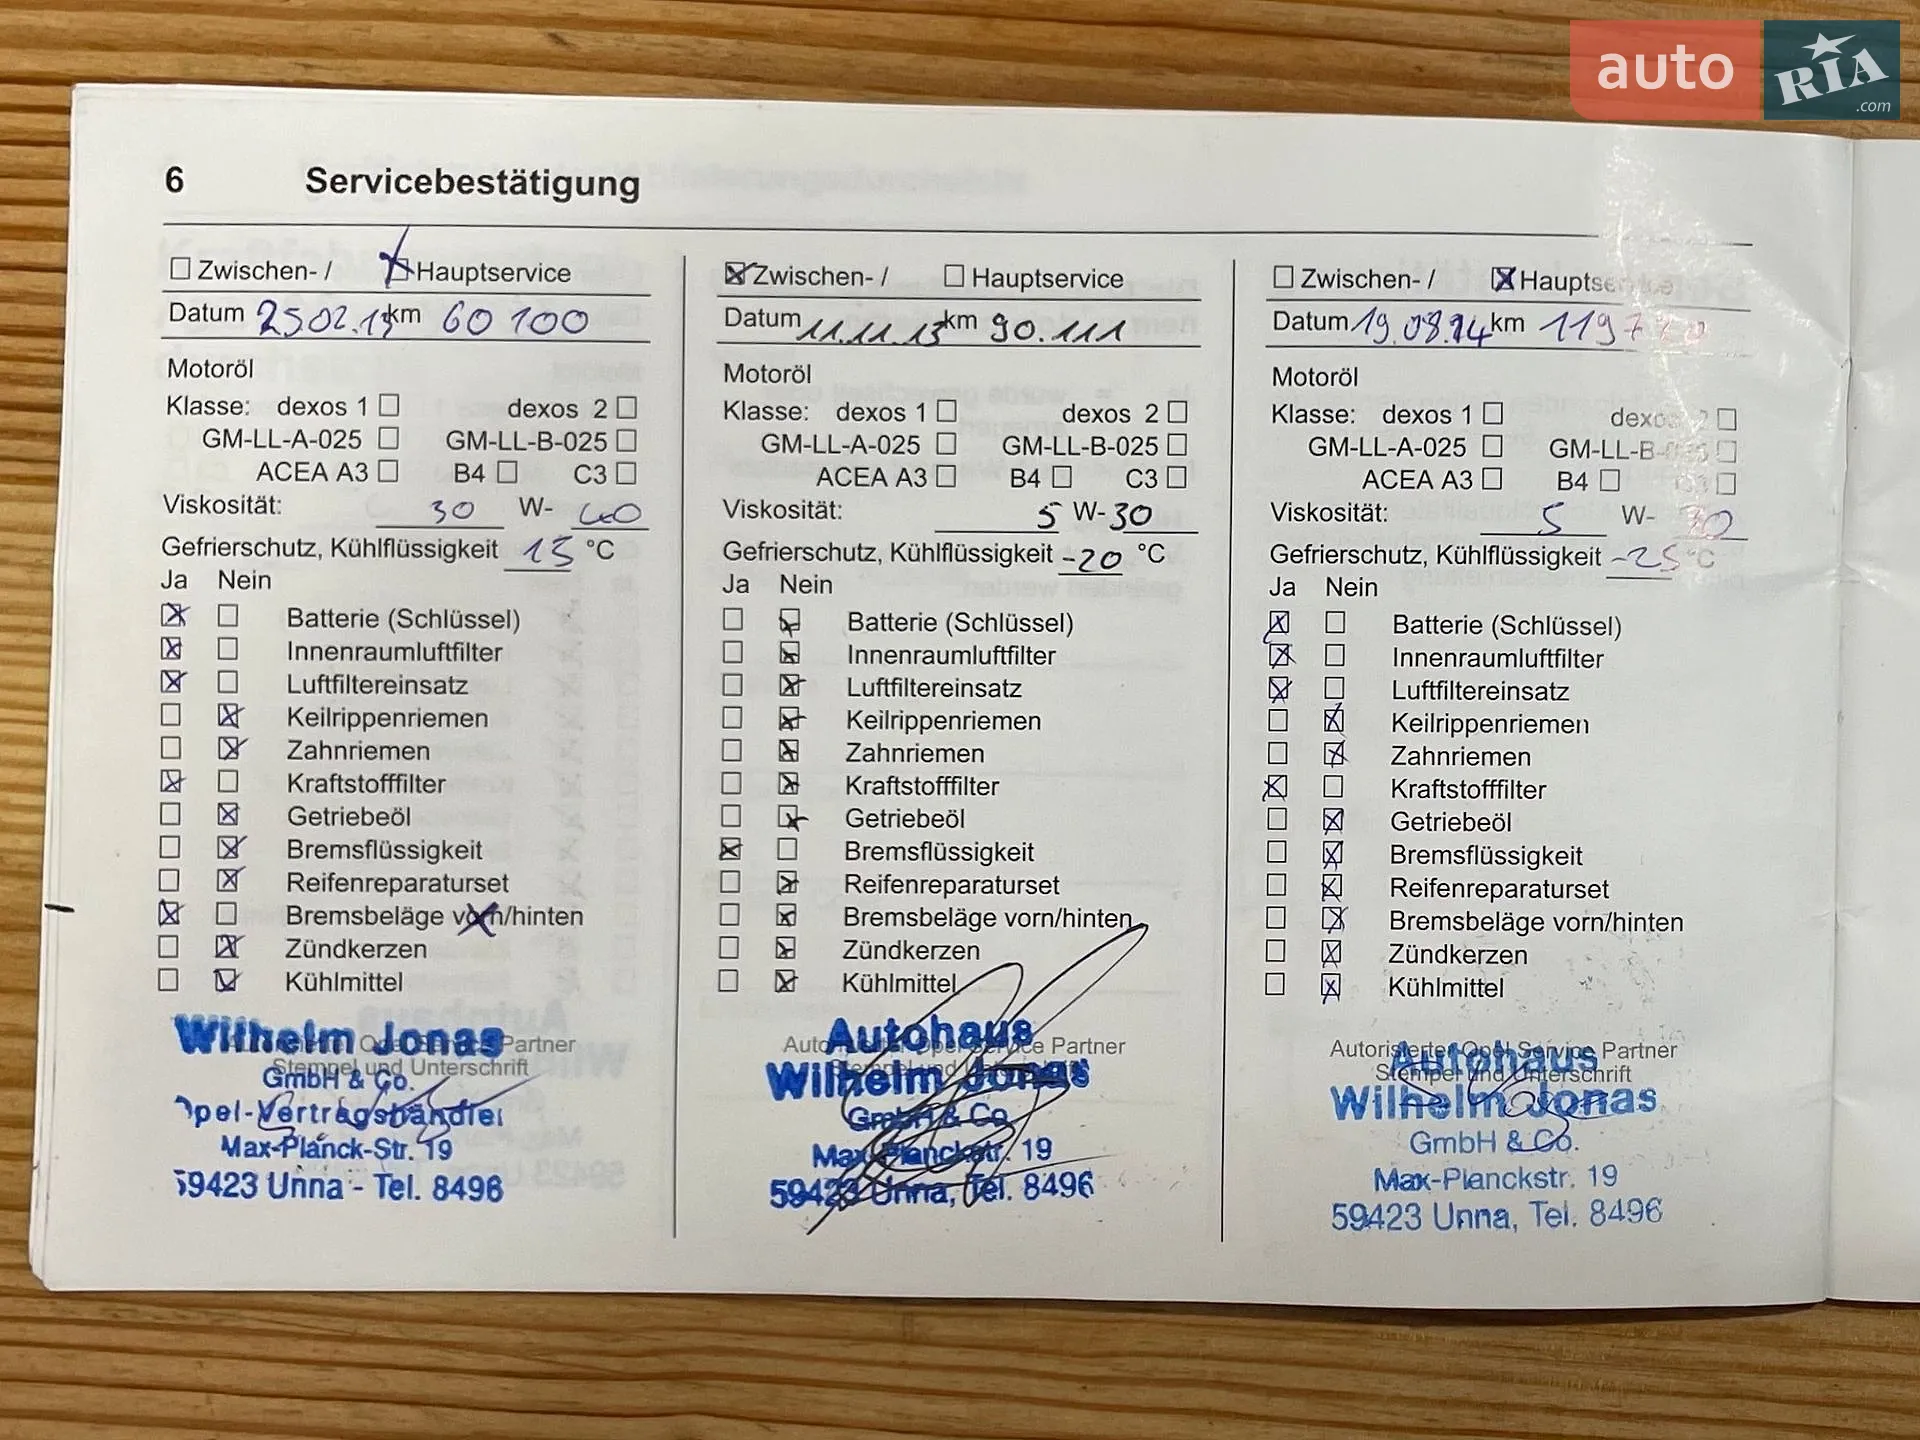 auto RIA .com
6 Servicebestätigung
Zwischen- / Hauptservice
Datum 25.02.13 km 60 100
Motoröl
Klasse: dexos 1 dexos 2
GM-LL-A-025 GM-LL-B-025
ACEA A3 B4 C3
Viskosität: 30 W- 40
Gefrierschutz, Kühlflüssigkeit 15 °C
Ja Nein
Batterie (Schlüssel)
Innenraumluftfilter
Luftfiltereinsatz
Keilrippenriemen
Zahnriemen
Kraftstofffilter
Getriebeöl
Bremsflüssigkeit
Reifenreparaturset
Bremsbeläge vorn/hinten
Zündkerzen
Kühlmittel
Autorisierter Opel Service Partner
Stempel und Unterschrift
Wilhelm Jonas
GmbH & Co.
Opel-Vertragshändler
Max-Planck-Str. 19
59423 Unna - Tel. 8496
Zwischen- / Hauptservice
Datum 11.11.13 km 90.111
Motoröl
Klasse: dexos 1 dexos 2
GM-LL-A-025 GM-LL-B-025
ACEA A3 B4 C3
Viskosität: 5 W- 30
Gefrierschutz, Kühlflüssigkeit -20 °C
Ja Nein
Batterie (Schlüssel)
Innenraumluftfilter
Luftfiltereinsatz
Keilrippenriemen
Zahnriemen
Kraftstofffilter
Getriebeöl
Bremsflüssigkeit
Reifenreparaturset
Bremsbeläge vorn/hinten
Zündkerzen
Kühlmittel
Autorisierter Opel Service Partner
Stempel und Unterschrift
Autohaus
Wilhelm Jonas
GmbH & Co.
Max-Planckstr. 19
59423 Unna, Tel. 8496
Zwischen- / Hauptservice
Datum 19.08.14 km
Motoröl
Klasse: dexos 1 dexos 2
GM-LL-A-025 GM-LL-B-025
ACEA A3 B4 C3
Viskosität: 5 W- 30
Gefrierschutz, Kühlflüssigkeit -25 °C
Ja Nein
Batterie (Schlüssel)
Innenraumluftfilter
Luftfiltereinsatz
Keilrippenriemen
Zahnriemen
Kraftstofffilter
Getriebeöl
Bremsflüssigkeit
Reifenreparaturset
Bremsbeläge vorn/hinten
Zündkerzen
Kühlmittel
Autorisierter Opel Service Partner
Stempel und Unterschrift
Autohaus
Wilhelm Jonas
GmbH & Co.
Max-Planckstr. 19
59423 Unna, Tel. 8496